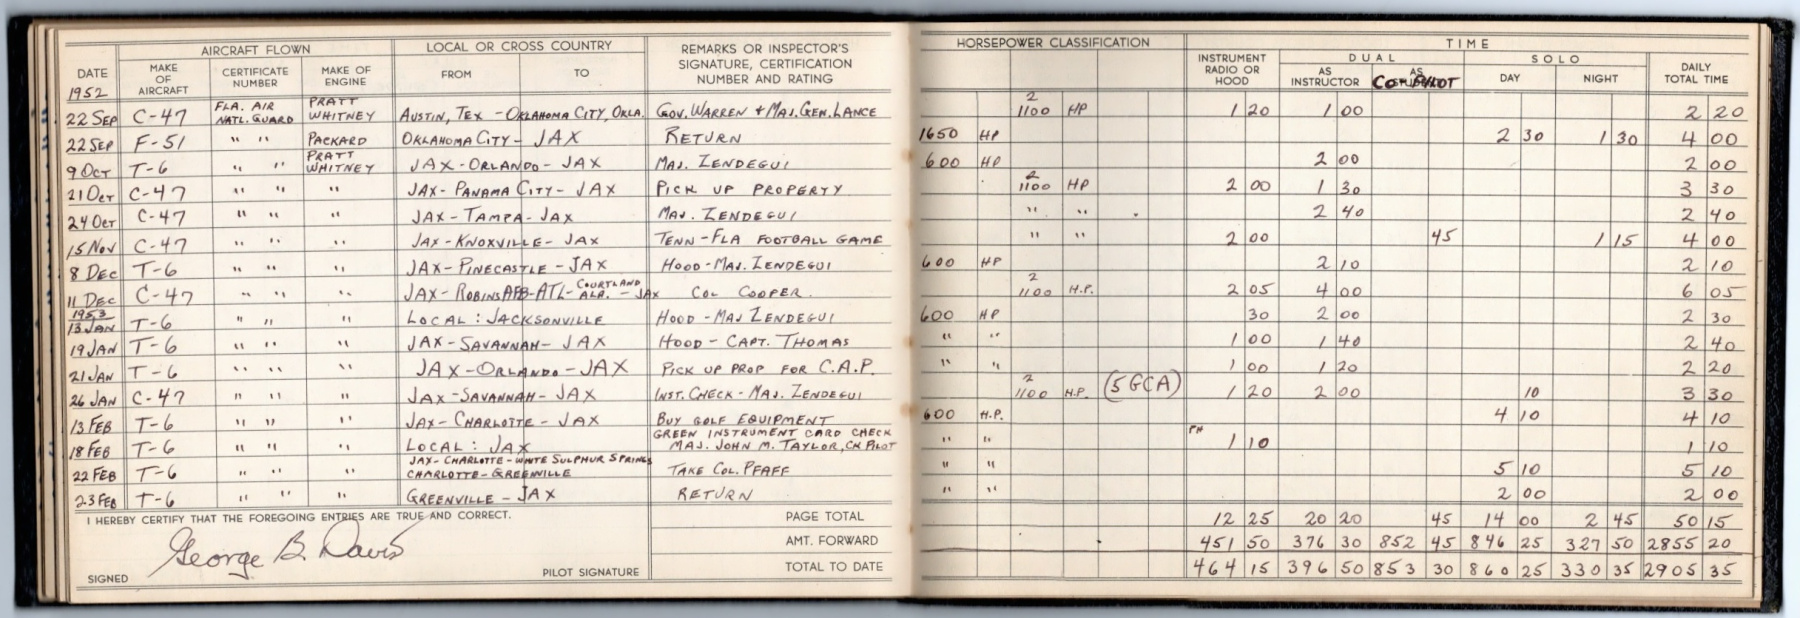 AIRCRAFT FLOWN LOCAL OR CROSS COUNTRY REMARKS OR INSPECTOR'S SIGNATURE, CERTIFICATION NUMBER AND RATING HORSEPOWER CLASSIFICATION TIME
DATE MAKE OF AIRCRAFT CERTIFICATE NUMBER MAKE OF ENGINE FROM TO INSTRUMENT RADIO OR HOOD DUAL SOLO DAILY TOTAL TIME
1952 AS INSTRUCTOR AS CO-PILOT DAY NIGHT
22 SEP C-47 FLA. AIR NATL. GUARD PRATT WHITNEY AUSTIN, TEX - OKLAHOMA CITY, OKLA. GOV. WARREN & MAJ. GEN. LANCE 2 1100 HP 1 20 1 00 2 20
22 SEP F-51 " " PACKARD OKLAHOMA CITY - JAX RETURN 1650 HP 2 30 1 30 4 00
9 OCT T-6 " " PRATT WHITNEY JAX - ORLANDO - JAX MAJ. ZENDEGUI 600 HP 2 00 2 00
21 OCT C-47 " " " JAX - PANAMA CITY - JAX PICK UP PROPERTY 2 1100 HP 2 00 1 30 3 30
24 OCT C-47 " " " JAX - TAMPA - JAX MAJ. ZENDEGUI " " 2 40 2 40
15 NOV C-47 " " " JAX - KNOXVILLE - JAX TENN - FLA FOOTBALL GAME " " 2 00 45 1 15 4 00
8 DEC T-6 " " " JAX - PINECASTLE - JAX HOOD - MAJ. ZENDEGUI 600 HP 2 10 2 10
11 DEC C-47 " " " JAX - ROBINS AFB - ATL - COURTLAND ALA. - JAX COL COOPER. 2 1100 H.P. 2 05 4 00 6 05
1953
13 JAN T-6 " " " LOCAL : JACKSONVILLE HOOD - MAJ ZENDEGUI 600 HP 30 2 00 2 30
19 JAN T-6 " " " JAX - SAVANNAH - JAX HOOD - CAPT. THOMAS " " 1 00 1 40 2 40
21 JAN T-6 " " " JAX - ORLANDO - JAX PICK UP PROP FOR C.A.P. " " 1 00 1 20 2 20
26 JAN C-47 " " " JAX - SAVANNAH - JAX INST. CHECK - MAJ. ZENDEGUI 2 1100 H.P. (5 GCA) 1 20 2 00 10 3 30
13 FEB T-6 " " " JAX - CHARLOTTE - JAX BUY GOLF EQUIPMENT 600 H.P. 4 10 4 10
18 FEB T-6 " " " LOCAL : JAX GREEN INSTRUMENT CARD CHECK MAJ. JOHN M. TAYLOR, CK PILOT " " 1 10 1 10
22 FEB T-6 " " " JAX - CHARLOTTE - WHITE SULPHUR SPRINGS CHARLOTTE - GREENVILLE TAKE COL. PFAFF " " 5 10 5 10
23 FEB T-6 " " " GREENVILLE - JAX RETURN " " 2 00 2 00
I HEREBY CERTIFY THAT THE FOREGOING ENTRIES ARE TRUE AND CORRECT. PAGE TOTAL 12 25 20 20 45 14 00 2 45 50 15
George B. Davis AMT. FORWARD 451 50 376 30 852 45 846 25 327 50 2855 20
SIGNED PILOT SIGNATURE TOTAL TO DATE 464 15 396 50 853 30 860 25 330 35 2905 35